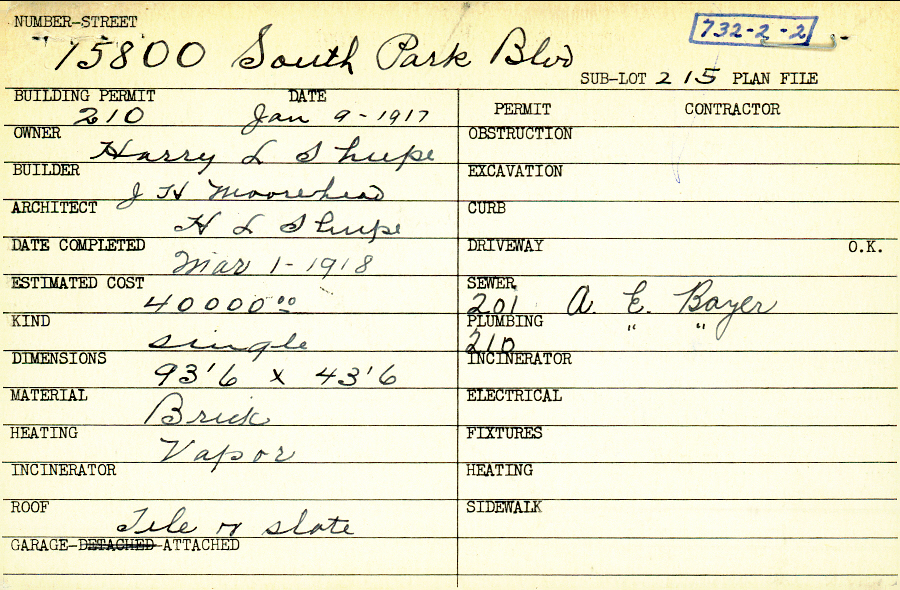 NUMBER-STREET
732-2-2
15800 South Park Blvd
SUB-LOT 215 PLAN FILE
BUILDING PERMIT DATE
210 Jan 9-1917
OWNER
Harry L Shupe
BUILDER
J H Moorehead
ARCHITECT
H L Shupe
DATE COMPLETED
Mar 1-1918
ESTIMATED COST
40000.00
KIND
single
DIMENSIONS
93'6 x 43'6
MATERIAL
Brick
HEATING
Vapor
INCINERATOR
ROOF
Tile or slate
GARAGE-DETACHED-ATTACHED
PERMIT CONTRACTOR
OBSTRUCTION
EXCAVATION
CURB
DRIVEWAY O.K.
SEWER
201 A. E. Boyer
PLUMBING
210 " "
INCINERATOR
ELECTRICAL
FIXTURES
HEATING
SIDEWALK